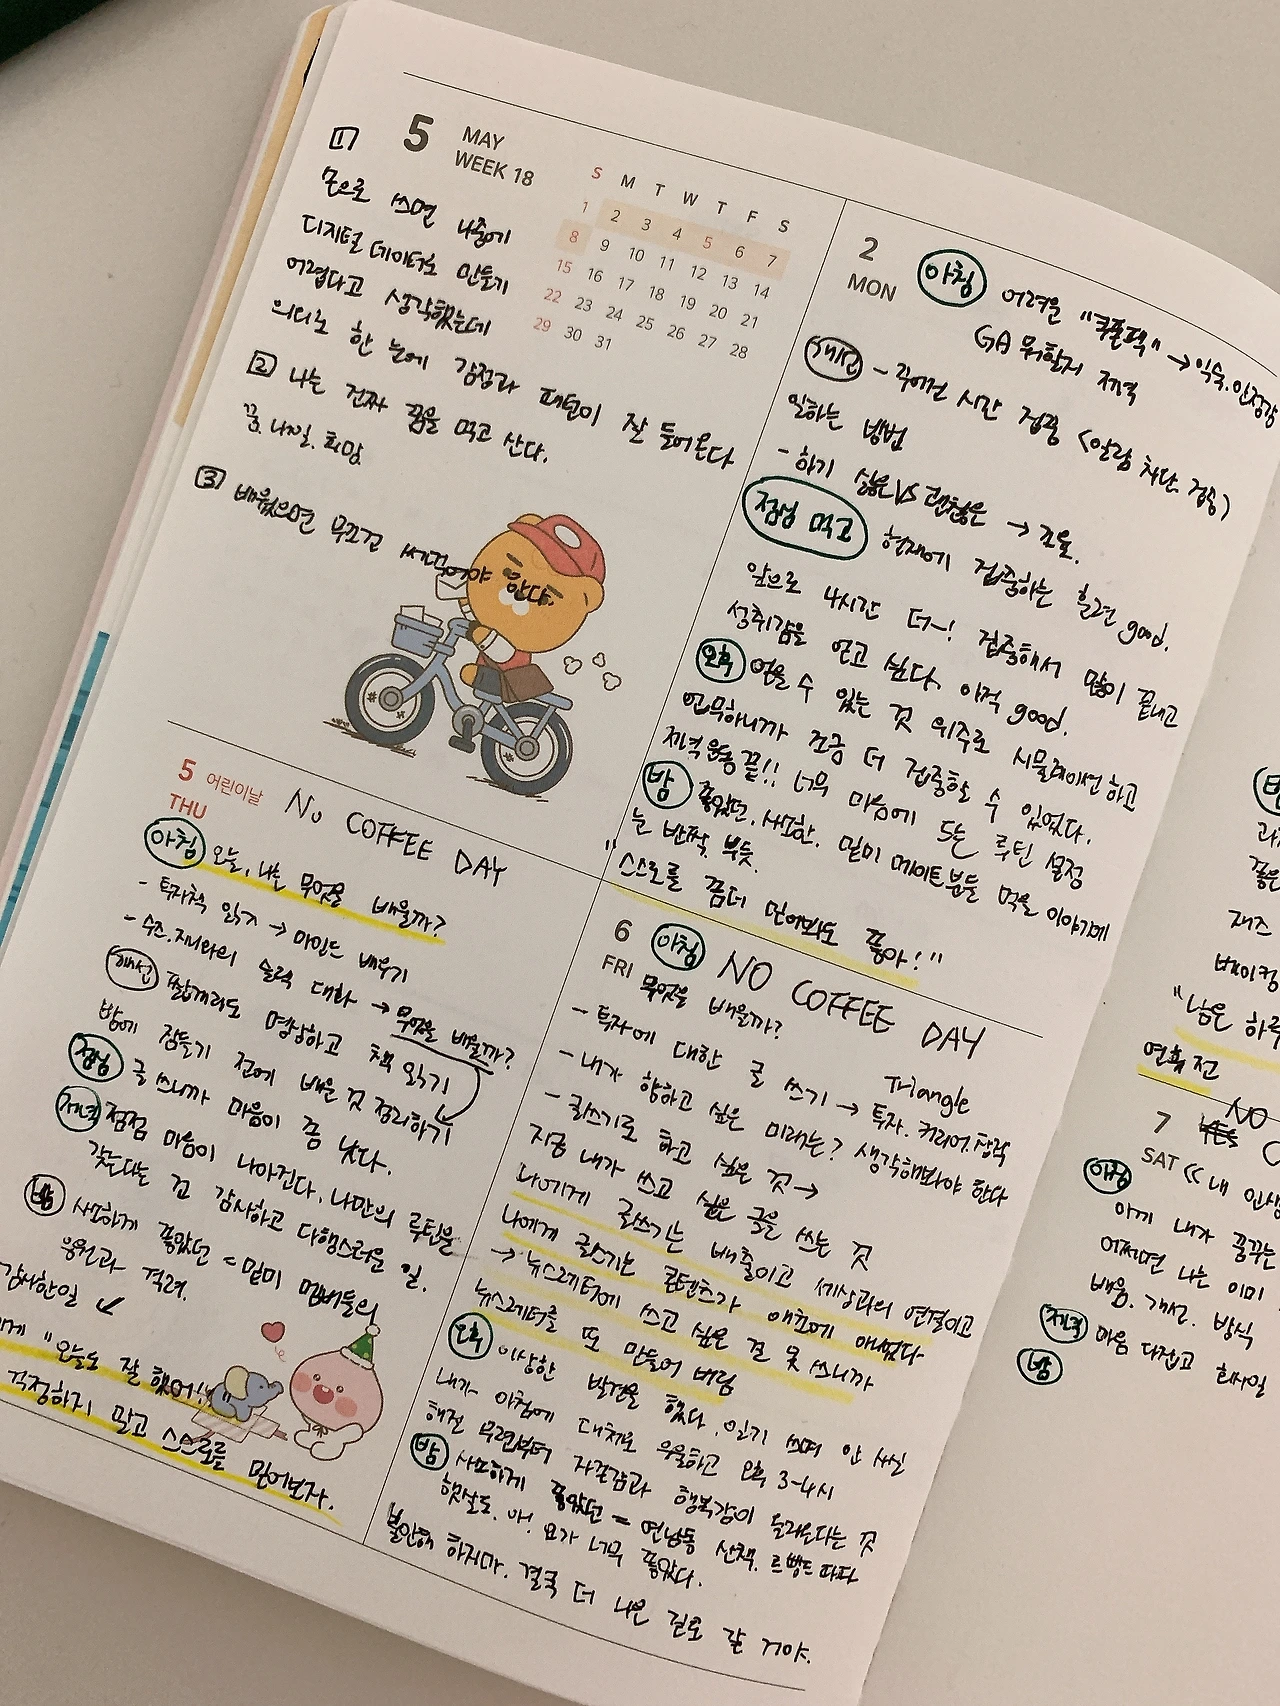 5 MAY
WEEK 18
S M T W T F S
1 2 3 4 5 6 7
8 9 10 11 12 13 14
15 16 17 18 19 20 21
22 23 24 25 26 27 28
29 30 31
1
손으로 쓰면 나중에
디지털 데이터로 만들기
어렵다고 생각했는데
의외로 한 눈에 감정과 패턴이 잘 들어온다
2 나는 진짜 꿈을 먹고 산다.
꿈. 내일. 희망
3 배웠으면 무조건 써먹어야 한다.
2
MON
아침 어려운 → 익숙. 안정감
GA 뭐할지 제작
개선 - 주어진 시간 집중 <알람 차단. 집중>
일하는 방법
- 하기 싫은 VS 괜찮은 → 조율.
점심 먹고 현재에 집중하는 훈련 good.
앞으로 4시간 더~! 집중해서 많이 끝내고
성취감을 얻고 싶다. 이적 good.
오후 얻을 수 있는 것 위주로 시뮬레이션 하고
업무하니까 조금 더 집중할 수 있었다.
저녁 운동 끝!! 너무 마음에 드는 루틴 설정
밤 좋았던. 사소한. 밑미 메이트분들 먹을 이야기에
눈 반짝. 뿌듯.
"스스로를 좀더 믿어봐도 좋아!"
5 어린이날 No COFFEE DAY
THU
아침 오늘, 나는 무엇을 배울까?
- 투자책 읽기 → 마인드 배우기
- 수즈.지니와의 슬랙 대화 → 무엇을 배울까?
개선 짧게라도 명상하고 책 읽기
밤에 잠들기 전에 배운 것 정리하기
점심 글 쓰니까 마음이 좀 낫다.
저녁 점점 마음이 나아진다. 나만의 루틴을
갖는다는 건 감사하고 다행스러운 일.
밤 사소하게 좋았던 = 밑미 멤버들의
응원과 격려.
감사한일
에게 "오늘도 잘 했어!!"
걱정하지 말고 스스로를 믿어보자.
6 아침 NO COFFEE DAY
FRI 무엇을 배울까?
- 투자에 대한 글 쓰기 → 투자. 커리어. 창작
Triangle
- 내가 향하고 싶은 미래는? 생각해봐야 한다
- 글쓰기로 하고 싶은 것 →
지금 내가 쓰고 싶은 글을 쓰는 것
나에게 글쓰기는 배출이고 세상과의 연결이고
나에게 글쓰기는 콘텐츠가 애초에 아니었다
→ 뉴스레터에 쓰고 싶은 걸 못 쓰니까
뉴스레터를 또 만들어 버림
오후 이상한 발견을 했다. 일기 쓰며 안 사실
내가 아침에 대체로 우울하고 오후 3-4시
해진 무렵부터 자존감과 행복감이 올라온다는 것
밤 사소하게 좋았던 = 연남동 산책. 르빵드파파
햇살도. 아! 요가 너무 좋았다.
불안해 하지마. 결국 더 나은 길로 갈 거야.
밤
좋은
베이킹
"남은 하루
연휴 전
NO
7
SAT << 내 인생
아침
아까 내가 꿈꾸는
어쩌면 나는 이미
배움. 개선. 방식
저녁 마음 다잡고 회사일
밤